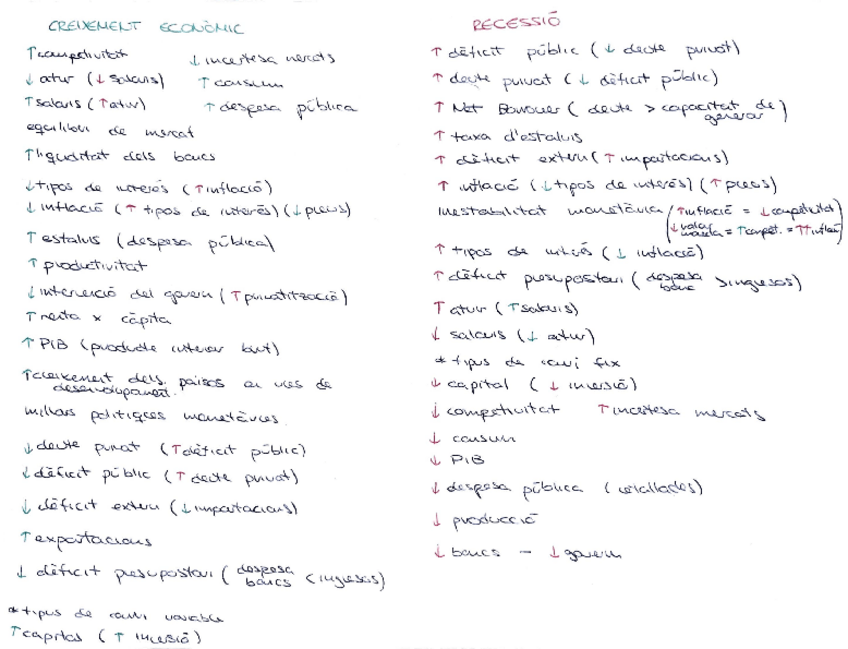 CREIXEMENT ECONÒMIC
↑ competivitat ↓ incertesa mercats
↓ atur (↓ salaris) ↑ consum
↑ salaris (↑ atur) ↑ despesa pública
equilibri de mercat
↑ liquiditat dels bancs
↓ tipos de interés (↑ inflació)
↓ inflació (↑ tipos de interés) (↓ preus)
↑ estalvis (despesa pública)
↑ productivitat
↓ intervenció del govern (↑ privatització)
↑ renta x càpita
↑ PIB (producte interior brut)
↑ creixement dels països en vies de
desenvolupament.
millors polítiques monetàries.
↓ deute privat (↑ dèficit públic)
↓ dèficit públic (↑ deute privat)
↓ dèficit extern (↓ importacions)
↑ exportacions
↓ dèficit pressupostari (despesa
bancs < ingresos)
* tipus de canvi variable
↑ capitas (↑ inversió)
RECESSIÓ
↑ dèficit públic (↓ deute privat)
↑ deute privat (↓ dèficit públic)
↑ Net Borrower (deute > capacitat de
generar)
↑ taxa d'estalvis
↑ dèficit extern (↑ importacions)
↑ inflació (↓ tipos de interés) (↑ preus)
inestabilitat monetària (↑ inflació = ↓ competivitat)
(↓ valor
moneda = ↑ compet. = ↑↑ inflació)
↑ tipos de interés (↓ inflació)
↑ dèficit pressupostari (despesa
> ingresos)
↑ atur (↑ salaris)
↓ salaris (↓ atur)
* tipus de canvi fix
↓ capital (↓ inversió)
↓ competivitat ↑ incertesa mercats
↓ consum
↓ PIB
↓ despesa pública (retallades)
↓ producció
↓ bancs - ↓ govern